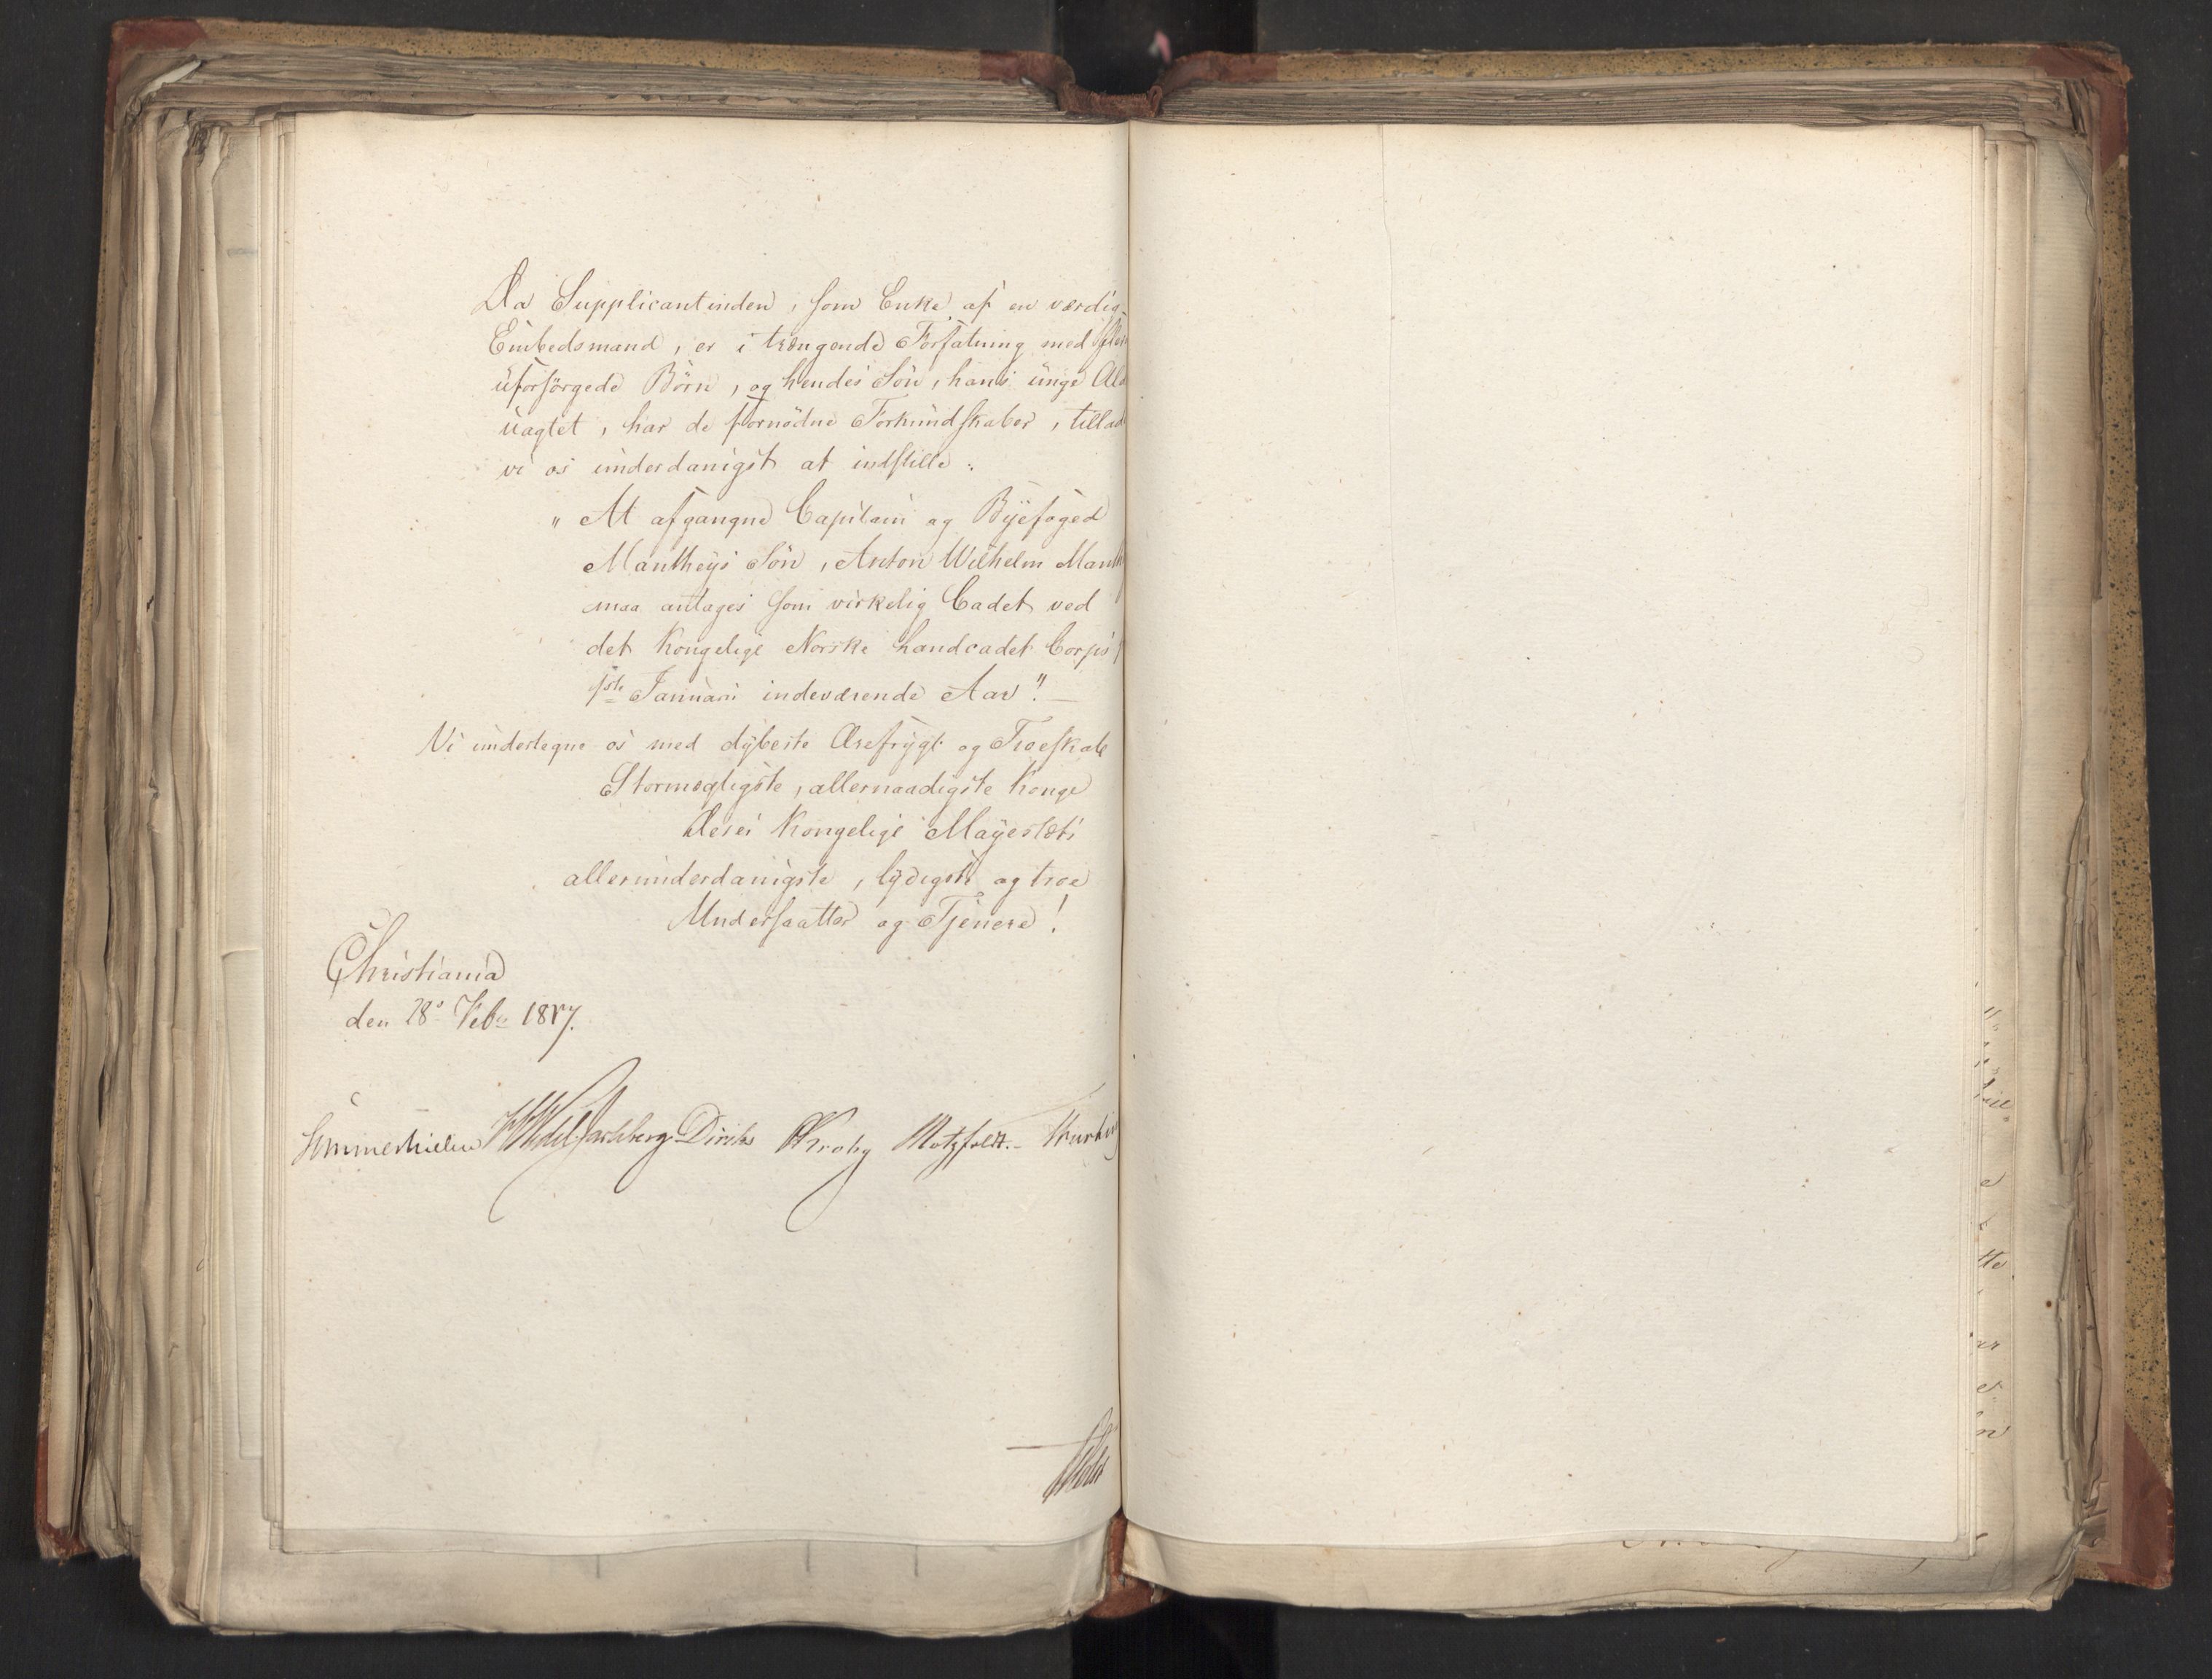 Da Supplicantinden, som Enke af en værdig
Embedsmand, er i trængende Forfatning med
uforsörgede Börn, og hendes Sön, hans unge
uagtet, har de fornödne Forkundskaber, tillad
vi os underdanigst at indstille:
"At afgangne Capitain og Byefoged
Mantheys Sön, Anton Wilhelm Manth
maa antages som virkelig Cadet ved
det Kongelige Norske Landcadet Corps
1ste Januari indeværende Aar". —
Vi undertegne os med dybeste Ærefrygt og Troeskab
Stormægtigste, allernaadigste Konge
Deres Kongelige Mayestæts
allerunderdanigste, lydigste og troe
Undersaatter og Tjenere!
Christiania
den 28de Febr 1817.
Sommerhielm Wedel Jarlsberg Diriks Krohg Motzfeldt.
Holst